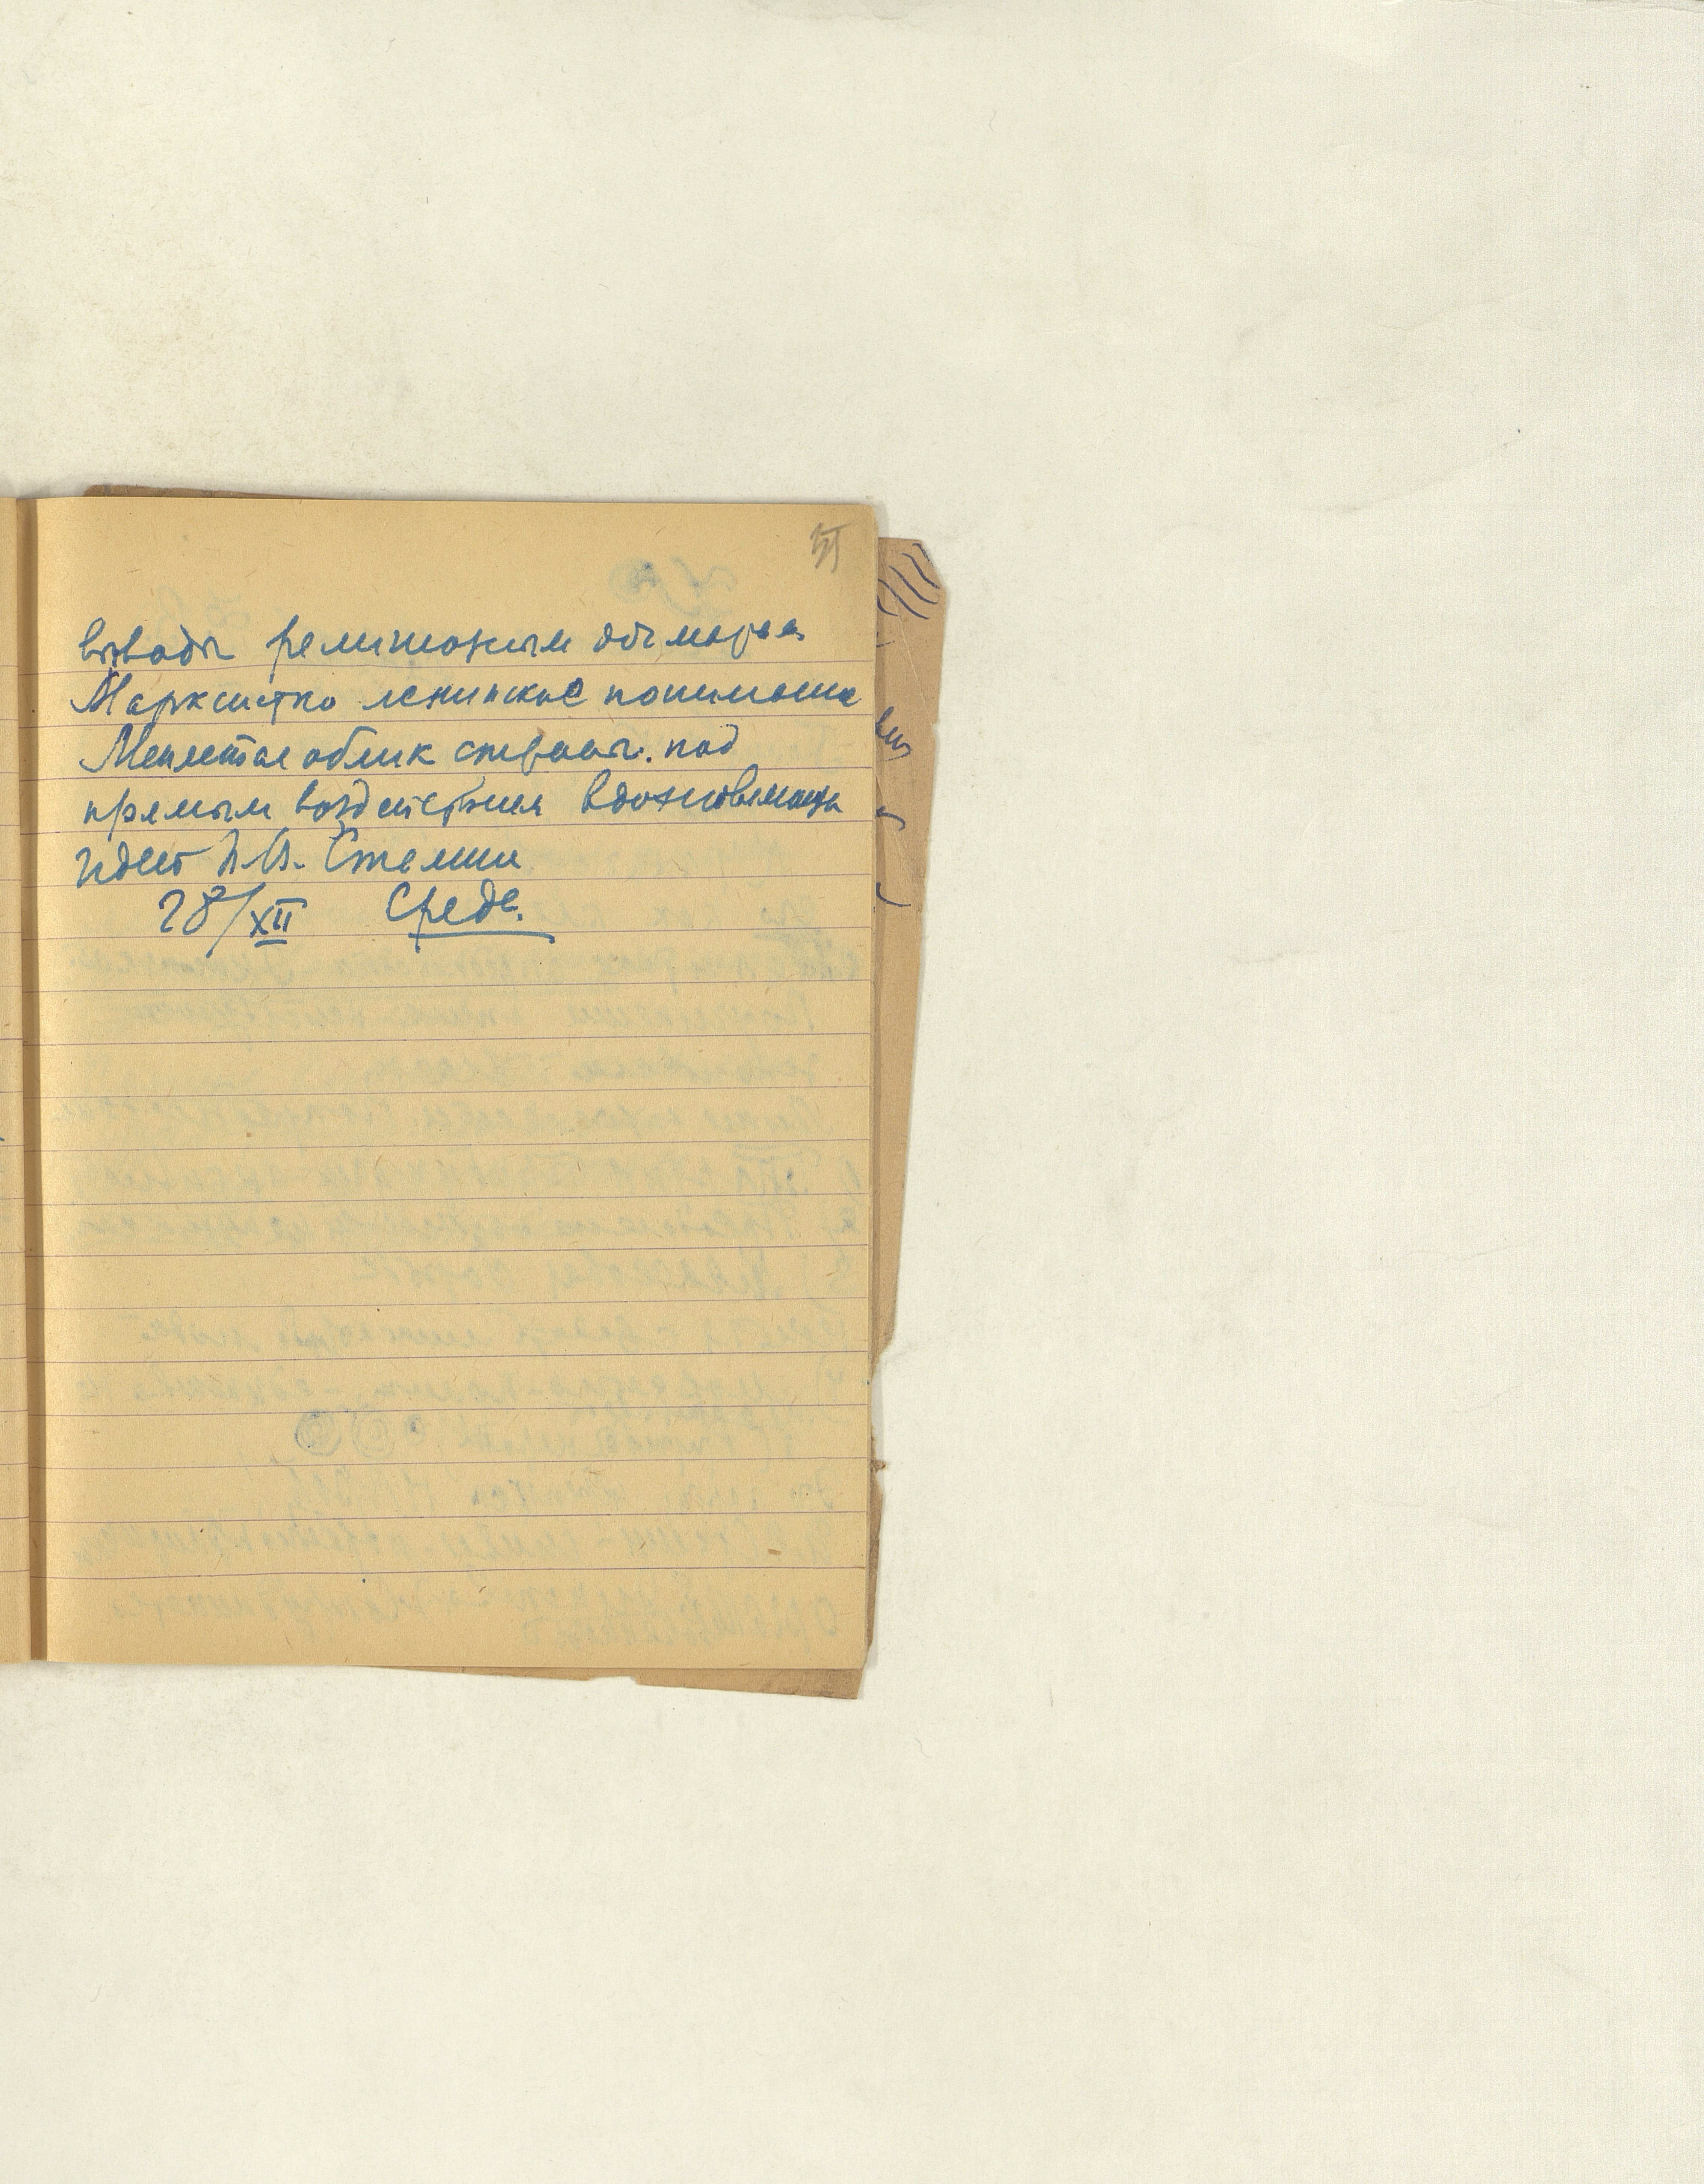 51
выводы религиозным дымара
Марксистко ленинское понимание
Меняется облик страны. под
прямым воздействием вдохновляющ
идей И.В. Сталин
28/XII Среда.